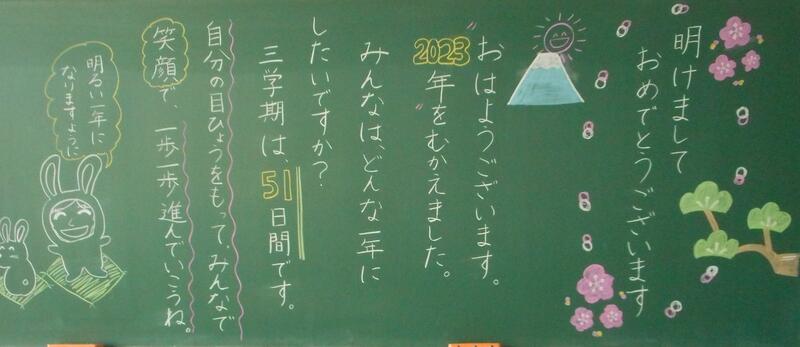 明けまして
おめでとうございます
おはようございます。
"2023年"をむかえました。
みんなは、どんな一年に
したいですか？
三学期は、51日間です。
自分の目ひょうをもって、みんなで
笑顔で、一歩一歩進んでいこうね。
明るい一年に
なりますように